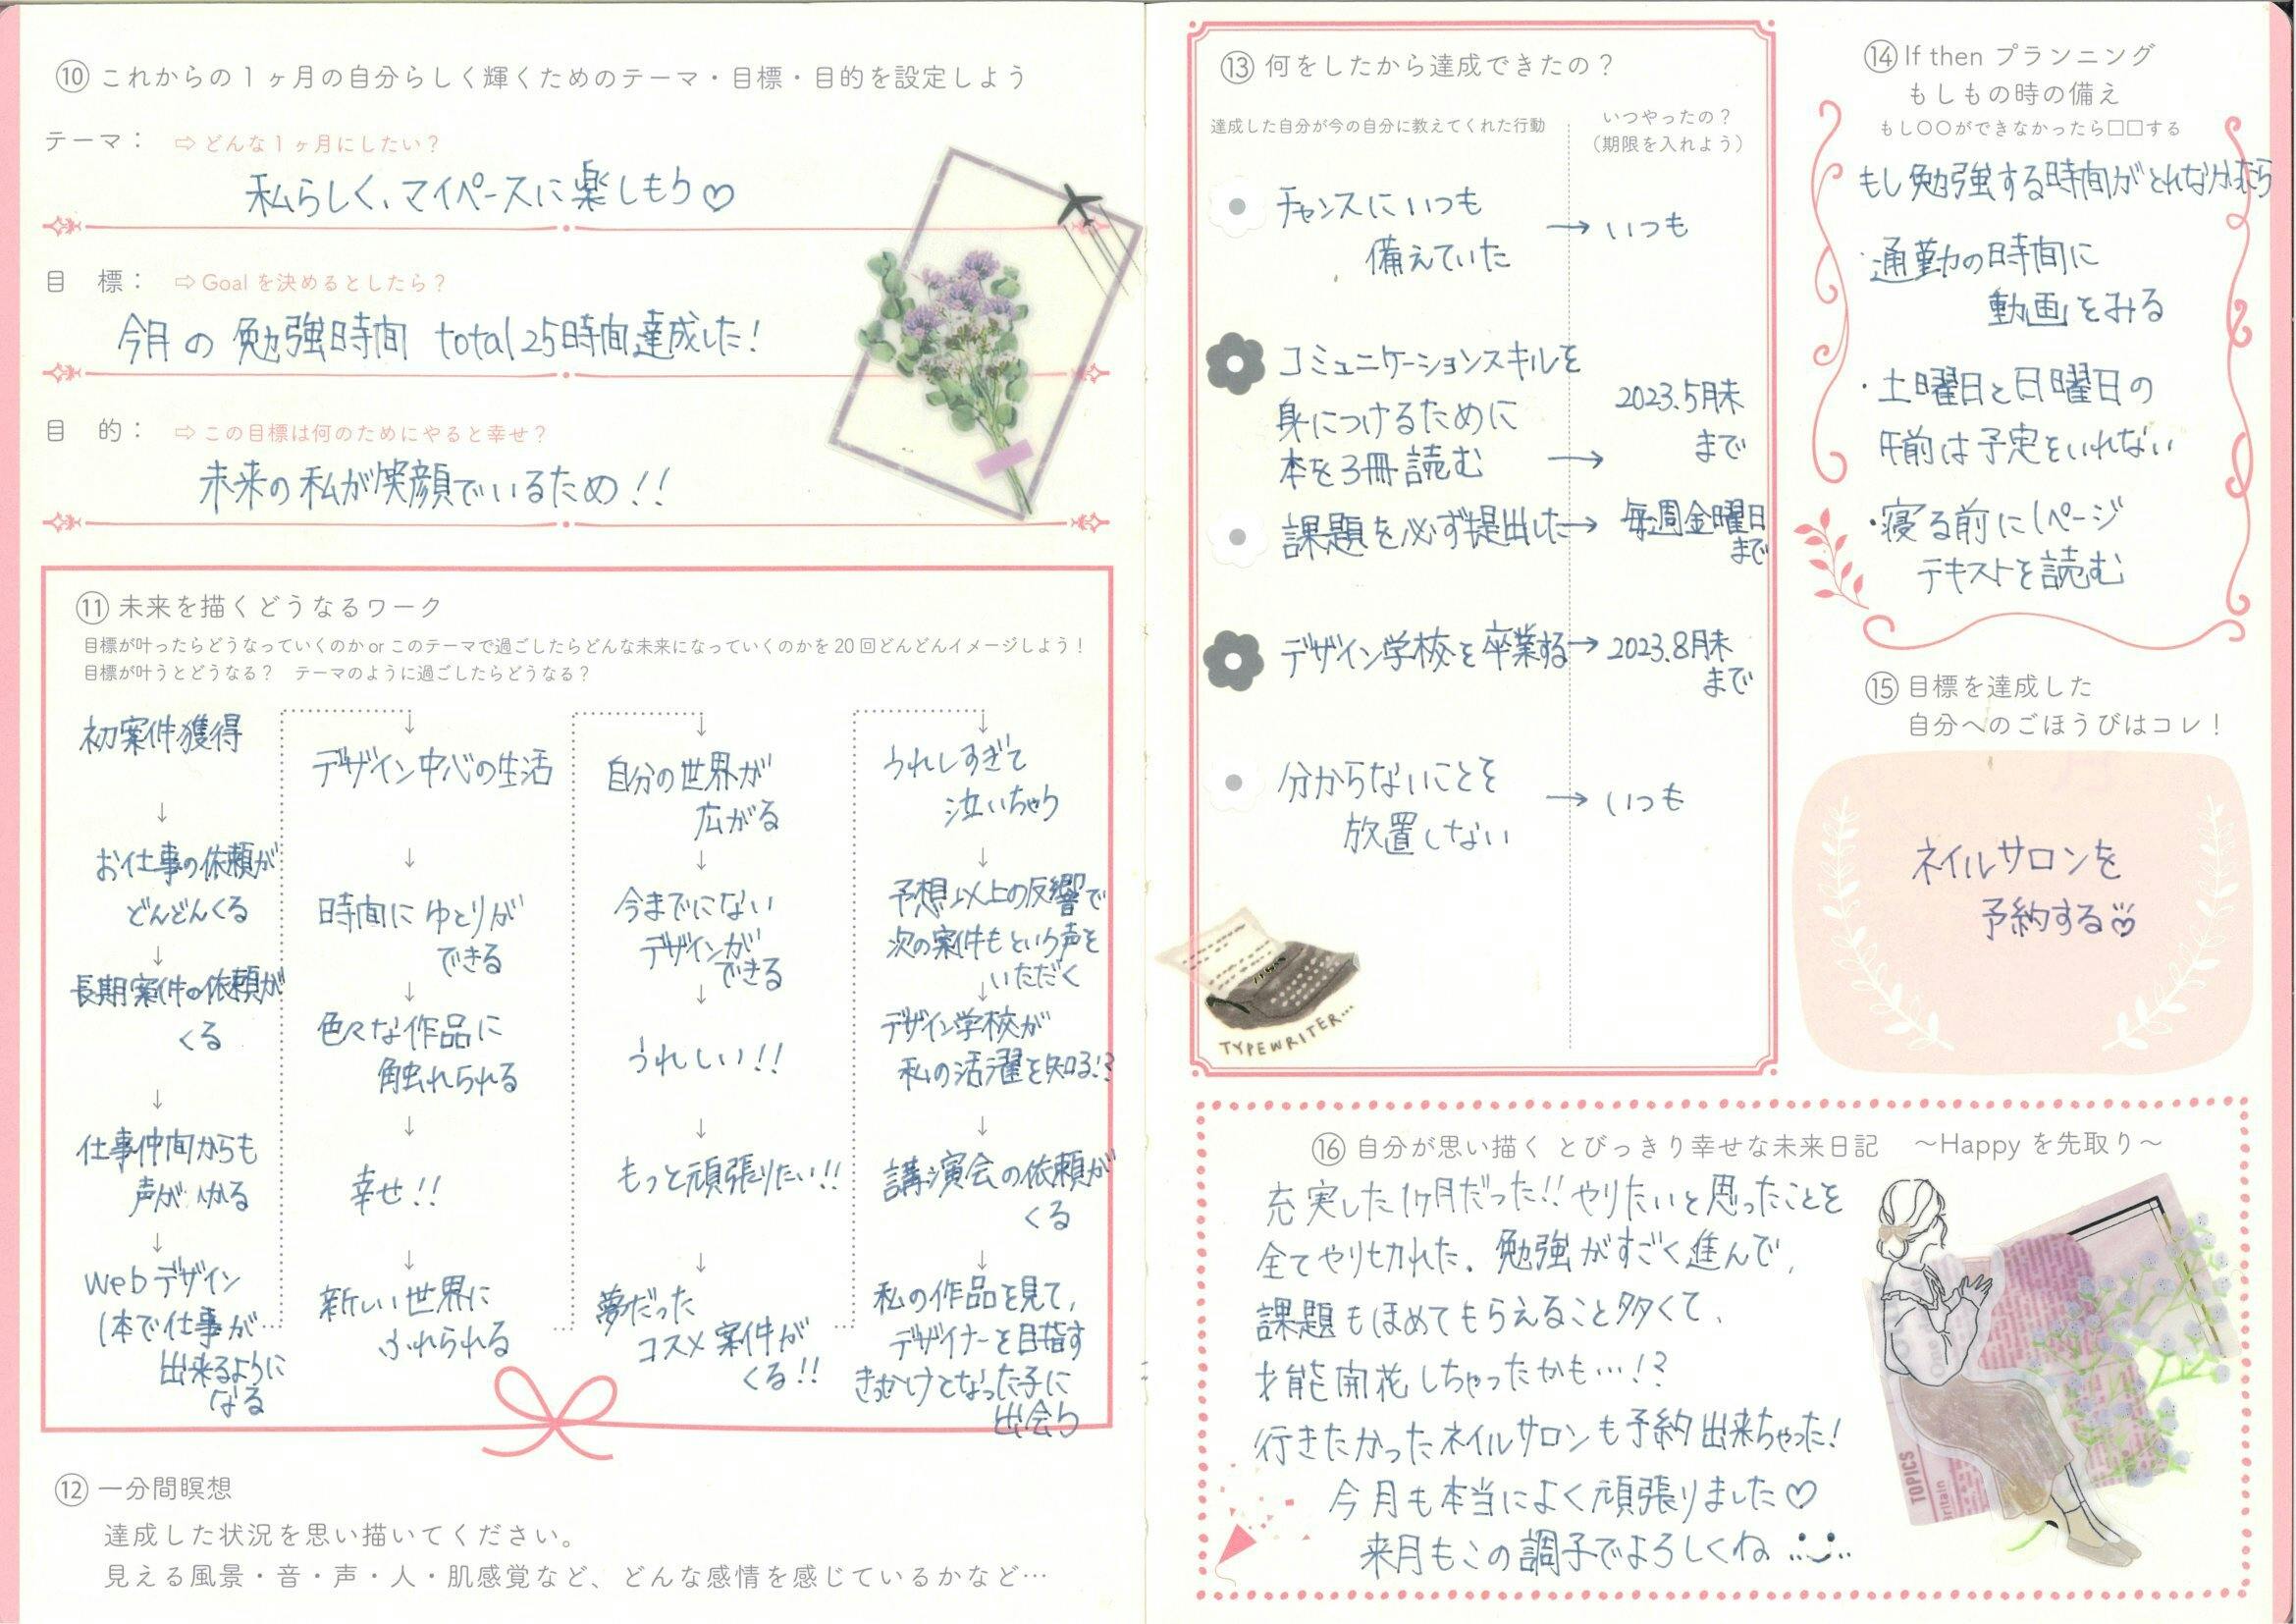 ⑩ これからの1ヶ月の自分らしく輝くためのテーマ・目標・目的を設定しよう
テーマ： ⇨どんな1ヶ月にしたい？
私らしく、マイペースに楽しもう♡
目 標： ⇨Goalを決めるとしたら？
今月の勉強時間 total 25時間達成した！
目 的： ⇨この目標は何のためにやると幸せ？
未来の私が笑顔でいるため！！
⑪ 未来を描くどうなるワーク
目標が叶ったらどうなっていくのか or このテーマで過ごしたらどんな未来になっていくのかを20回どんどんイメージしよう！
目標が叶うとどうなる？ テーマのように過ごしたらどうなる？
初案件獲得
↓
お仕事の依頼が
どんどんくる
↓
長期案件の依頼が
くる
↓
仕事仲間からも
声がかかる
↓
Webデザイン
1本で仕事が
出来るように
なる
↓
デザイン中心の生活
↓
時間にゆとりが
できる
↓
色々な作品に
触れられる
↓
幸せ！！
↓
新しい世界に
ふれられる
↓
自分の世界が
広がる
↓
今までにない
デザインが
できる
↓
うれしい！！
↓
もっと頑張りたい！！
↓
夢だった
コスメ案件が
くる！！
↓
うれしすぎて
泣いちゃう
↓
予想以上の反響で
次の案件もという声を
いただく
↓
デザイン学校が
私の活躍を知る！？
↓
講演会の依頼が
くる
↓
私の作品を見て、
デザイナーを目指す
きっかけとなった子に
出会う
⑫ 一分間瞑想
達成した状況を思い描いてください。
見える風景・音・声・人・肌感覚など、どんな感情を感じているかなど…
⑬ 何をしたから達成できたの？
達成した自分が今の自分に教えてくれた行動
いつやったの？
（期限を入れよう）
チャンスにいつも
備えていた
→ いつも
コミュニケーションスキルを
身につけるために
本を3冊読む →
2023.5月末
まで
課題を必ず提出した→ 毎週金曜日
まで
デザイン学校を卒業する→ 2023.8月末
まで
分からないことを
放置しない
→ いつも
TYPEWRITER...
⑭ If then プランニング
もしもの時の備え
もし○○ができなかったら□□する
もし勉強する時間がとれなかったら
・通勤の時間に
動画をみる
・土曜日と日曜日の
午前は予定をいれない
・寝る前に1ページ
テキストを読む
⑮ 目標を達成した
自分へのごほうびはコレ！
ネイルサロンを
予約する♡
⑯ 自分が思い描く とびっきり幸せな未来日記 ～Happyを先取り～
充実した1ヶ月だった！！やりたいと思ったことを
全てやりきれた。勉強がすごく進んで、
課題もほめてもらえること多くて、
才能開花しちゃったかも…！？
行きたかったネイルサロンも予約出来ちゃった！
今月も本当によく頑張りました♡
来月もこの調子でよろしくね
TOPICS